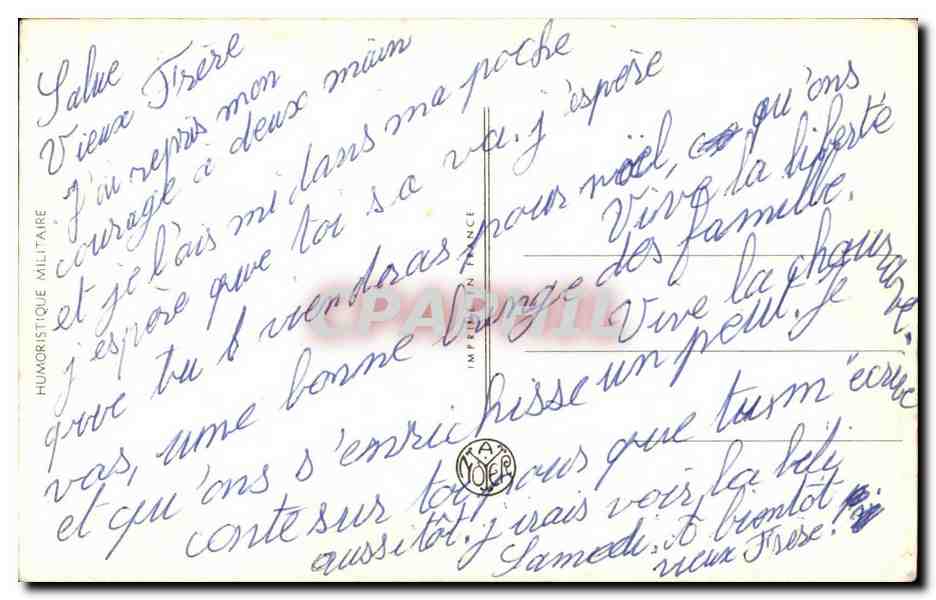 Salue
Vieux Frère
J'ai repris mon
courage à deux main
et je l'ais mi dans ma poche
j'espère que toi sa va. j'espère
que tu viendras pour noël, qu'ons
vas, une bonne bringe des famille.
Vive la liberté
et qu'ons s'enrichisse un peut. Je
Vive la
conte sur toi pous que tu m'écrive
aussitôt. j'irais voir la bibi
Samedi. A bientôt
vieux Frère.
HUMORISTIQUE MILITAIRE
IMPRIMÉ EN FRANCE
CPAPHIL